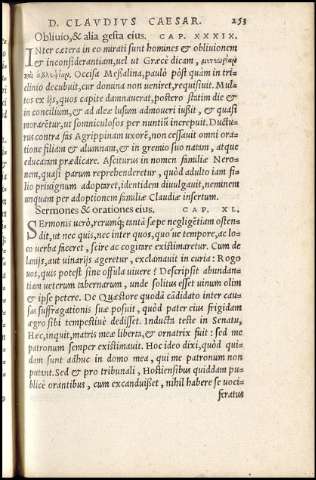 D. CLAVDIVS CAESAR. 253
Obliuio, & alia gesta eius. CAP. XXXIX.
INter cætera in eo mirati sunt homines & obliuionem
& inconsiderantiam, uel ut Græcè dicam, μετεωρίαν
καὶ ἀβλεψίαν. Occisa Meßalina, paulò pòst quàm in tri
clinio decubuit, cur domina non ueniret, requisiuit. Mul-
tos ex ijs, quos capite damnauerat, postero statim die &
in concilium, & ad aleæ lusum admoueri iußit, & quasi
morarẽtur, ut somniculosos per nuntiũ increpuit. Ductu-
rus contra fas Agrippinam uxorẽ, non cessauit omni ora-
tione filiam & alumnam, & in gremio suo natam, atque
educatam prædicare. Asciturus in nomen familiæ Nero-
nem, quasi parum reprehenderetur, quòd adulto iam fi-
lio priuignum adoptaret, identidem diuulgauit, neminem
unquam per adoptionem familiæ Claudiæ insertum.
Sermones & orationes eius. CAP. XL.
SErmonis uerò, rerumq; tantã sæpe negligẽtiam osten-
dit, ut nec quis, nec inter quos, quo ue tempore, ac lo-
co uerba faceret, scire ac cogitare existimaretur. Cum de
lanijs, aut uinarijs ageretur, exclamauit in curia: Rogo
uos, quis potest sine offula uiuere? Descripsit abundan-
tiam ueterum tabernarum, unde solitus esset uinum olim
& ipse petere. De Quæstore quodã cãdidato inter cau-
sas suffragationis suæ posuit, quòd pater eius frigidam
ægro sibi tempestiuè dedisset. Inducta teste in Senatu,
Hæc, inquit, matris meæ liberta, & ornatrix fuit: sed me
patronum semper existimauit. Hoc ideo dixi, quòd qui-
dam sunt adhuc in domo mea, qui me patronum non
putant. Sed & pro tribunali, Hostiensibus quiddam pu-
blicè orantibus, cum excanduißet, nihil habere se uoci-
feratus